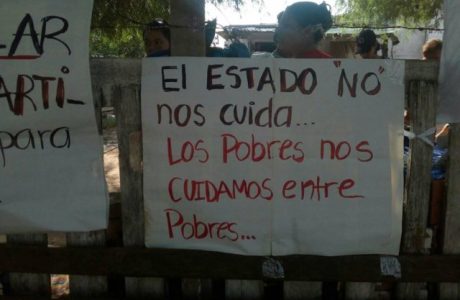 LAR
ARTI-
para
El ESTADO "NO"
nos cuida...
LOS PobRES nos
CUIDAMOS entre
Pobres...